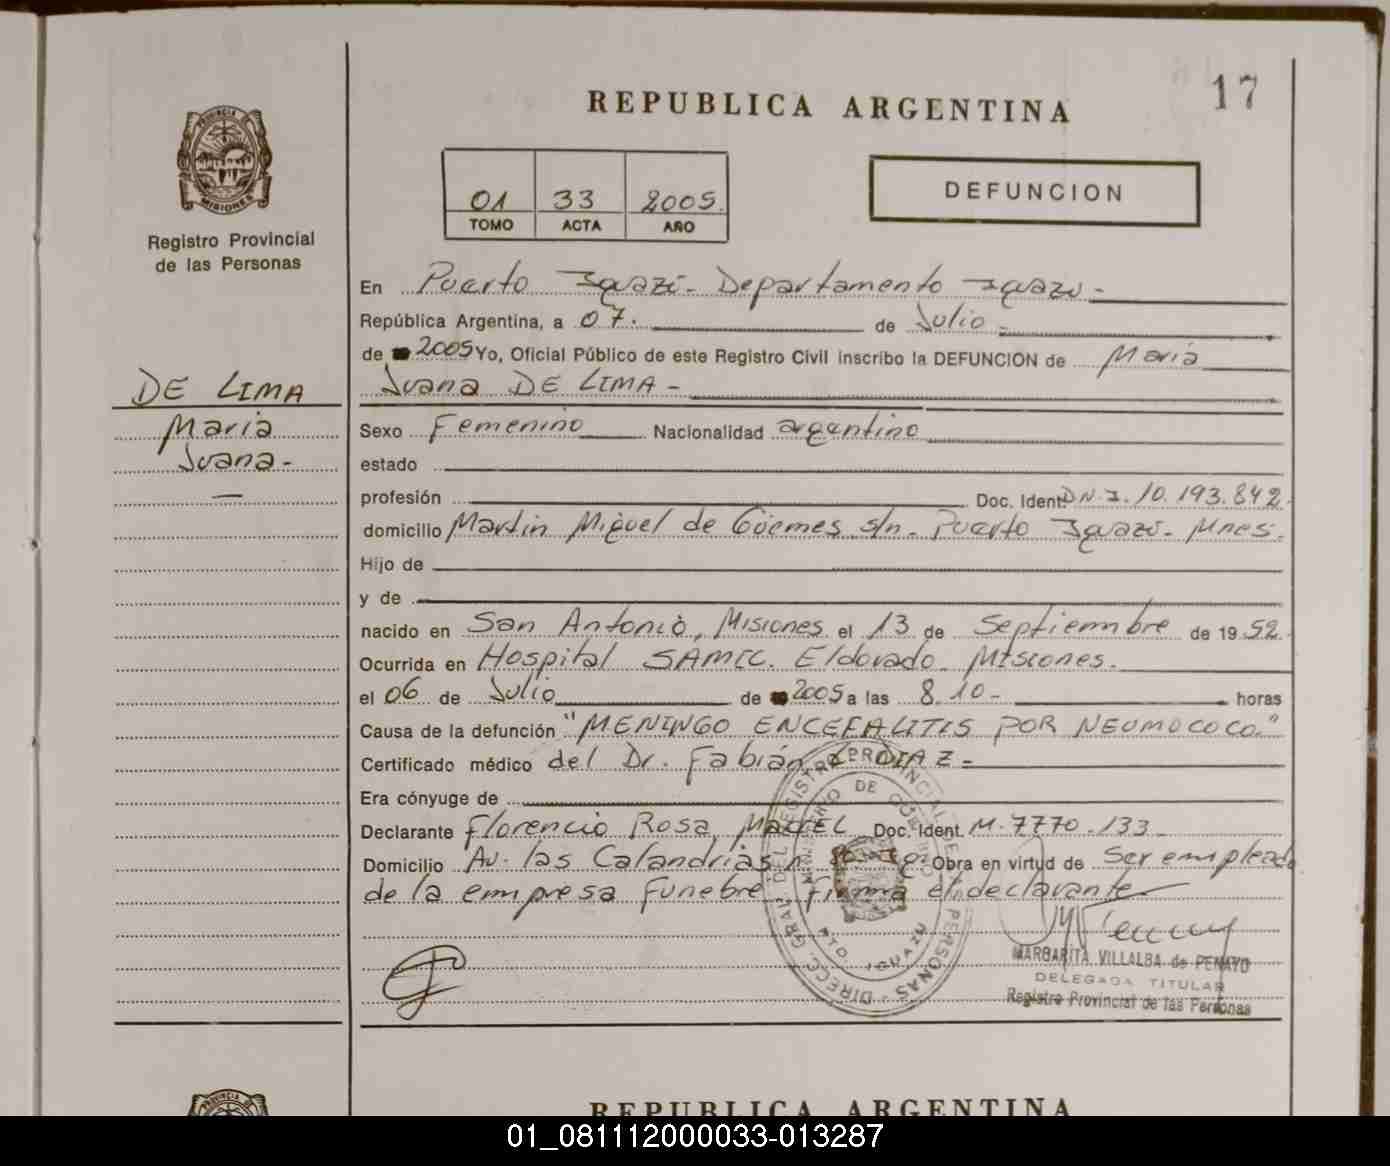 17
REPUBLICA ARGENTINA
PROVINCIA DE
MISIONES
Registro Provincial
de las Personas
01 33 2005.
TOMO ACTA AÑO
DEFUNCION
DE LIMA
Maria
Juana -
En Puerto Iguazú - Departamento Iguazu -
República Argentina, a 07. de Julio
de 2005 Yo, Oficial Público de este Registro Civil inscribo la DEFUNCION de Maria
Juana DE LIMA -
Sexo Femenino Nacionalidad argentino
estado
profesión Doc. Ident. D.N.I. 10.193.842
domicilio Martin Miguel de Güemes s/n. Puerto Iguazú - Mnes.
Hijo de
y de
nacido en San Antonio, Misiones el 13 de Septiembre de 1952
Ocurrida en Hospital SAMIC. Eldorado. Misiones.
el 06 de Julio de 2005 a las 8.10 - horas
Causa de la defunción "MENINGO ENCEFALITIS POR NEUMOCOCO."
Certificado médico del Dr. Fabián DIAZ -
Era cónyuge de
Declarante Florencio Rosa, Doc. Ident. M. 7770.133
Domicilio Av. las Calandrias Obra en virtud de ser empleado
de la empresa Funebre Firma el declarante
DIRECC. GRAL. DEL REGISTRO PROVINCIAL DE PERSONAS
MINISTERIO DE GOBIERNO
PTO. IGUAZU
MARGARITA VILLALBA de PENAYO
DELEGADA TITULAR
Registro Provincial de las Personas
PROVINCIA DE
REPUBLICA ARGENTINA
01_081112000033-013287